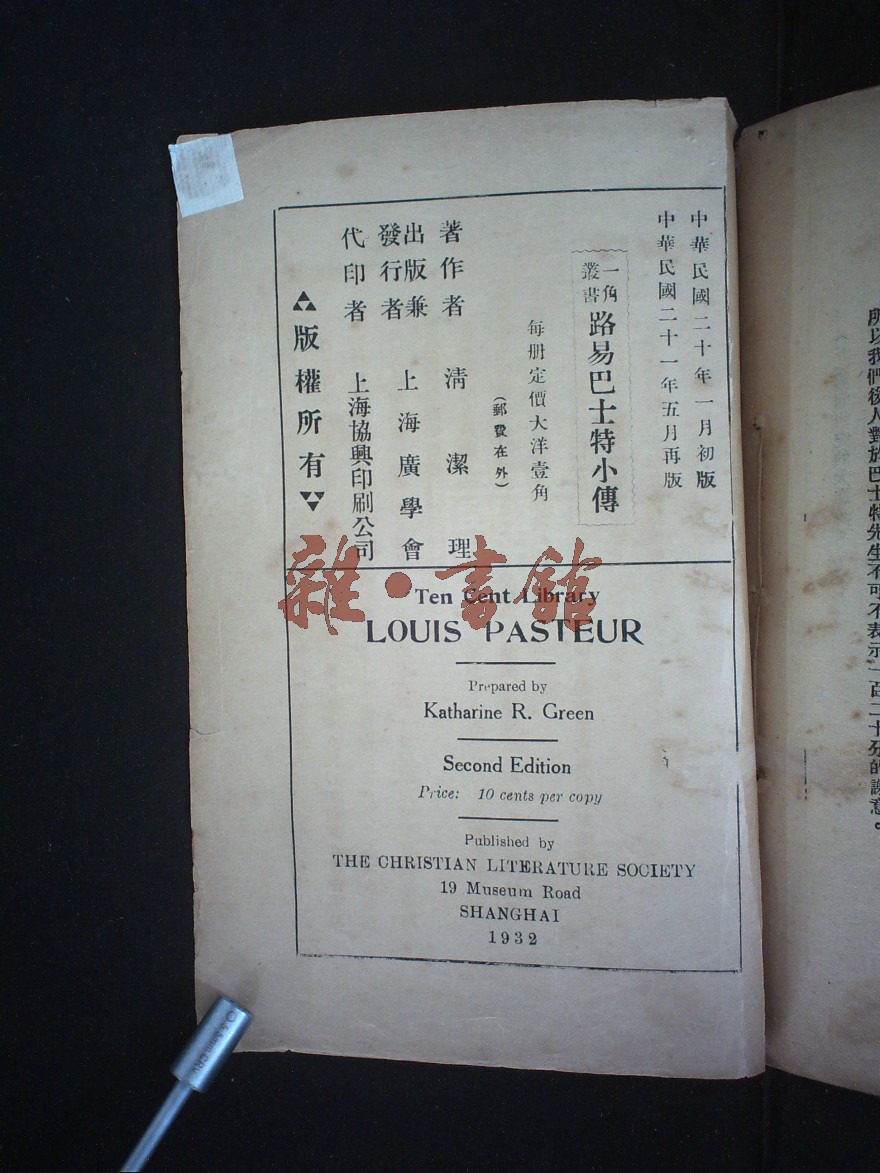 中華民國二十年一月初版
中華民國二十一年五月再版
一角叢書
路易巴士特小傳
每册定價大洋壹角
（郵費在外）
著作者 清潔理
出版兼發行者 上海廣學會
代印者 上海協興印刷公司
版權所有
雜·書館
Ten Cent Library
LOUIS PASTEUR
Prepared by
Katharine R. Green
Second Edition
Price: 10 cents per copy
Published by
THE CHRISTIAN LITERATURE SOCIETY
19 Museum Road
SHANGHAI
1932
所以我們後人對於巴士特先生不可不表示一百二十分的謝意。